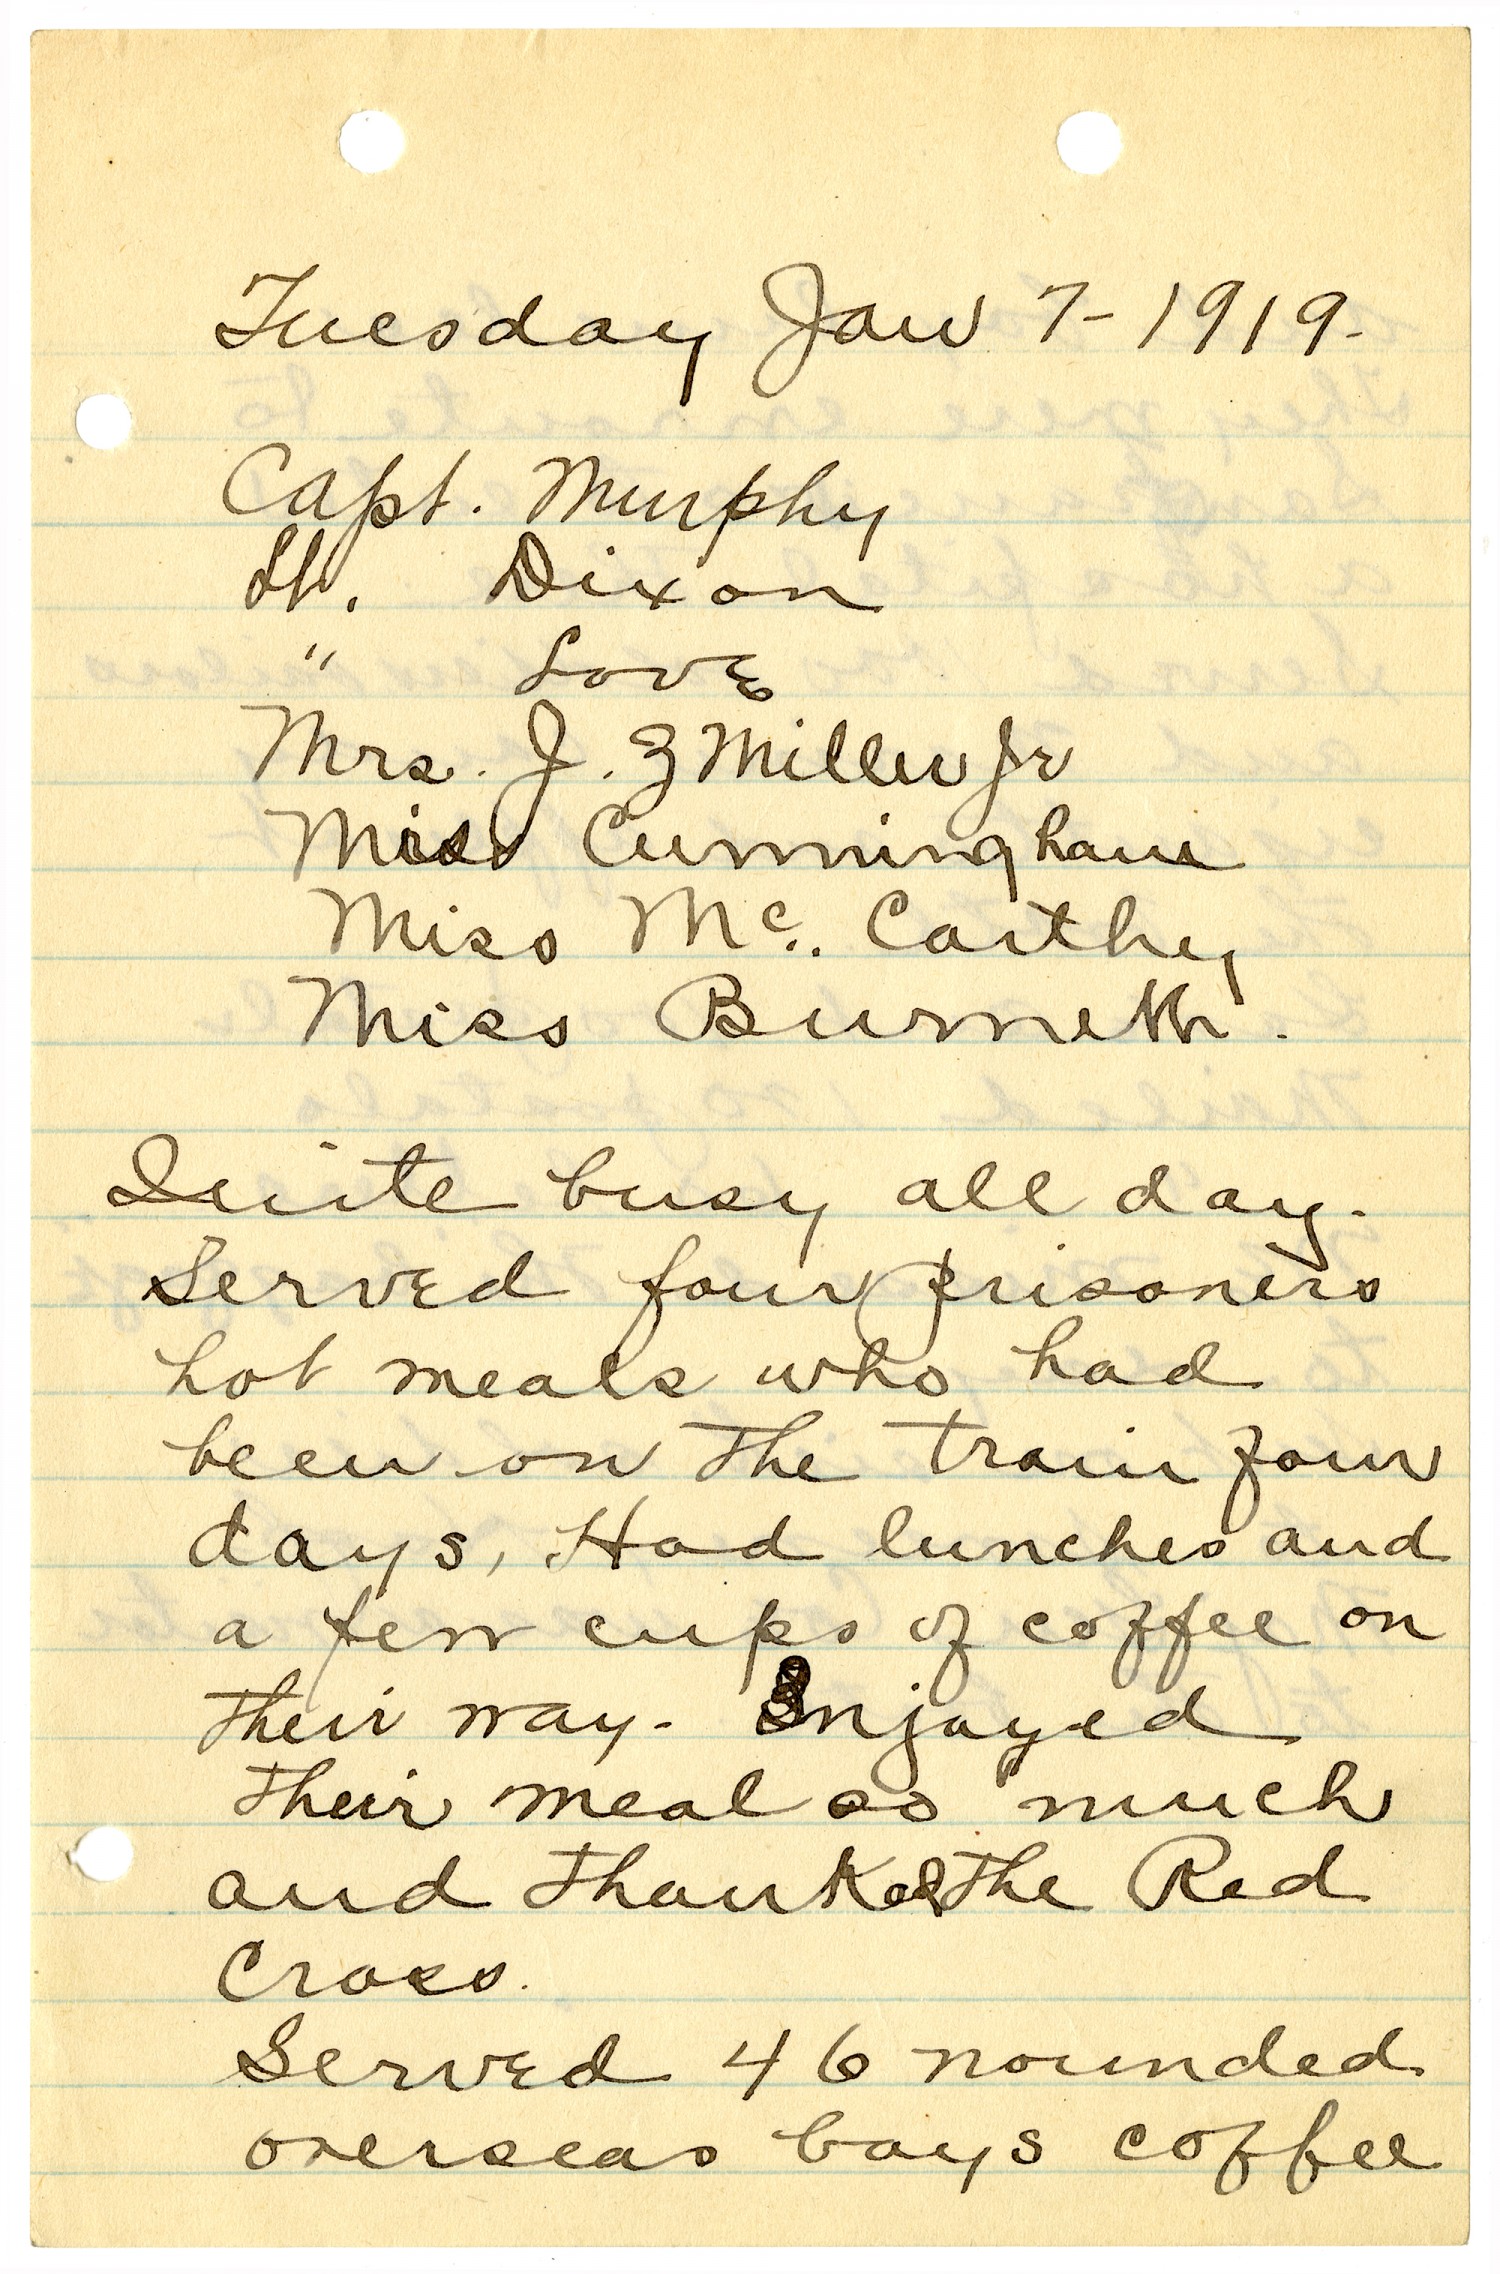 Tuesday Jan 7-1919-
Capt. Murphy
Lt. Dixon
" Love
Mrs. J. Z Miller Jr
Miss Cunningham
Miss Mc. Carthy
Miss Burnett.
Quite busy all day.
Served four prisoners
hot meals who had
been on the train four
days, Had lunches and
a few cups of coffee on
their way. Enjoyed
their meal so much
and thanked the Red
Cross.
Served 46 wounded
overseas boys coffee